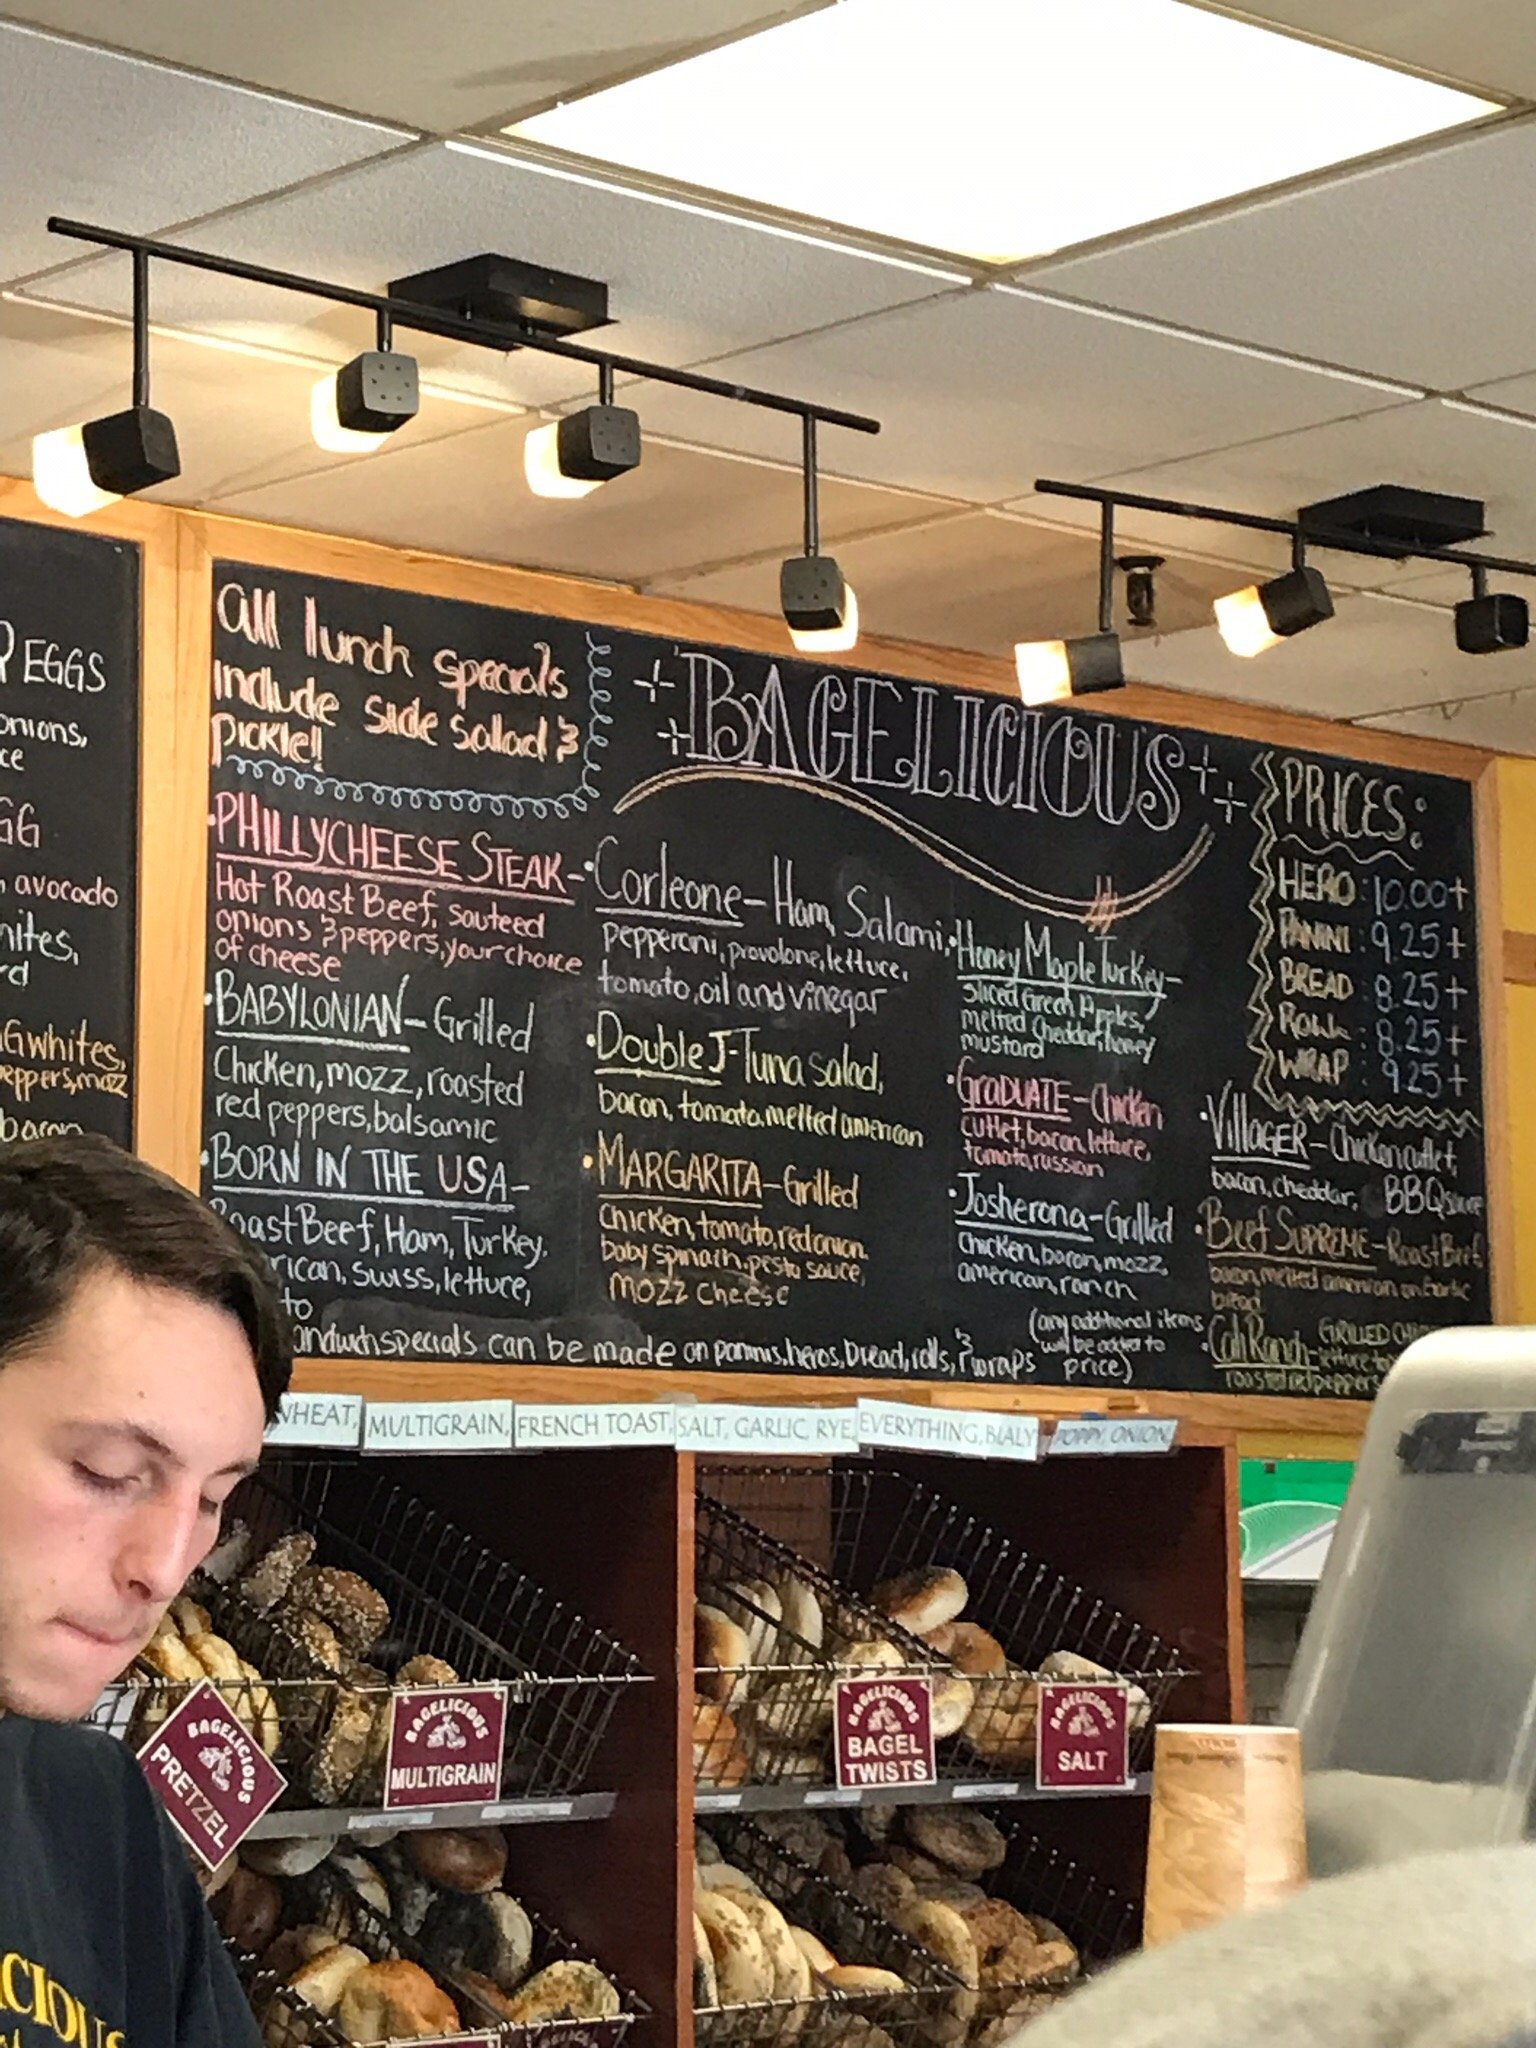 EGGS
onions,
GG
avocado
whites,
peppers, mozz
bacon
all lunch specials
include side sallad &
pickle!!
BAGELICIOUS
PRICES:
HERO: 10.00+
PANINI: 9.25+
BREAD: 8.25+
ROLL: 8.25+
WRAP: 9.25+
•PHILLYCHEESE STEAK-
Hot Roast Beef, sauteed
onions & peppers, your choice
of cheese
•BABYLONIAN-Grilled
Chicken, mozz, roasted
red peppers, balsamic
•BORN IN THE USA-
Roast Beef, Ham, Turkey,
rican, swiss, lettuce,
to
•Corleone-Ham, Salami,
pepperoni, provolone, lettuce,
tomato, oil and vinegar
•Double J-Tuna salad,
bacon, tomato, melted american
•MARGARITA-Grilled
chicken, tomato, red onion,
baby spinach, pesto sauce,
mozz cheese
•Honey Maple Turkey-
sliced Green Apples,
melted cheddar, honey
mustard
•GRADUATE-Chicken
cutlet, bacon, lettuce,
tomato, russian
•Josherona-Grilled
chicken, bacon, mozz,
american, ranch
•VILLAGER-Chicken cutlet,
bacon, cheddar, BBQ sauce
•Beef SUPREME-Roast Beef,
bacon, melted american on garlic
bread
•Cali Ranch-GRILLED
roasted red peppers
andwich specials can be made on paninis, heros, bread, rolls, & wraps
(any additional items
will be added to
price)
WHEAT, MULTIGRAIN, FRENCH TOAST, SALT, GARLIC, RYE, EVERYTHING, BIALY POPPY, ONION,
BAGELICIOUS
PRETZEL
BAGELICIOUS
MULTIGRAIN
BAGELICIOUS
BAGEL
TWISTS
BAGELICIOUS
SALT
CIOUS